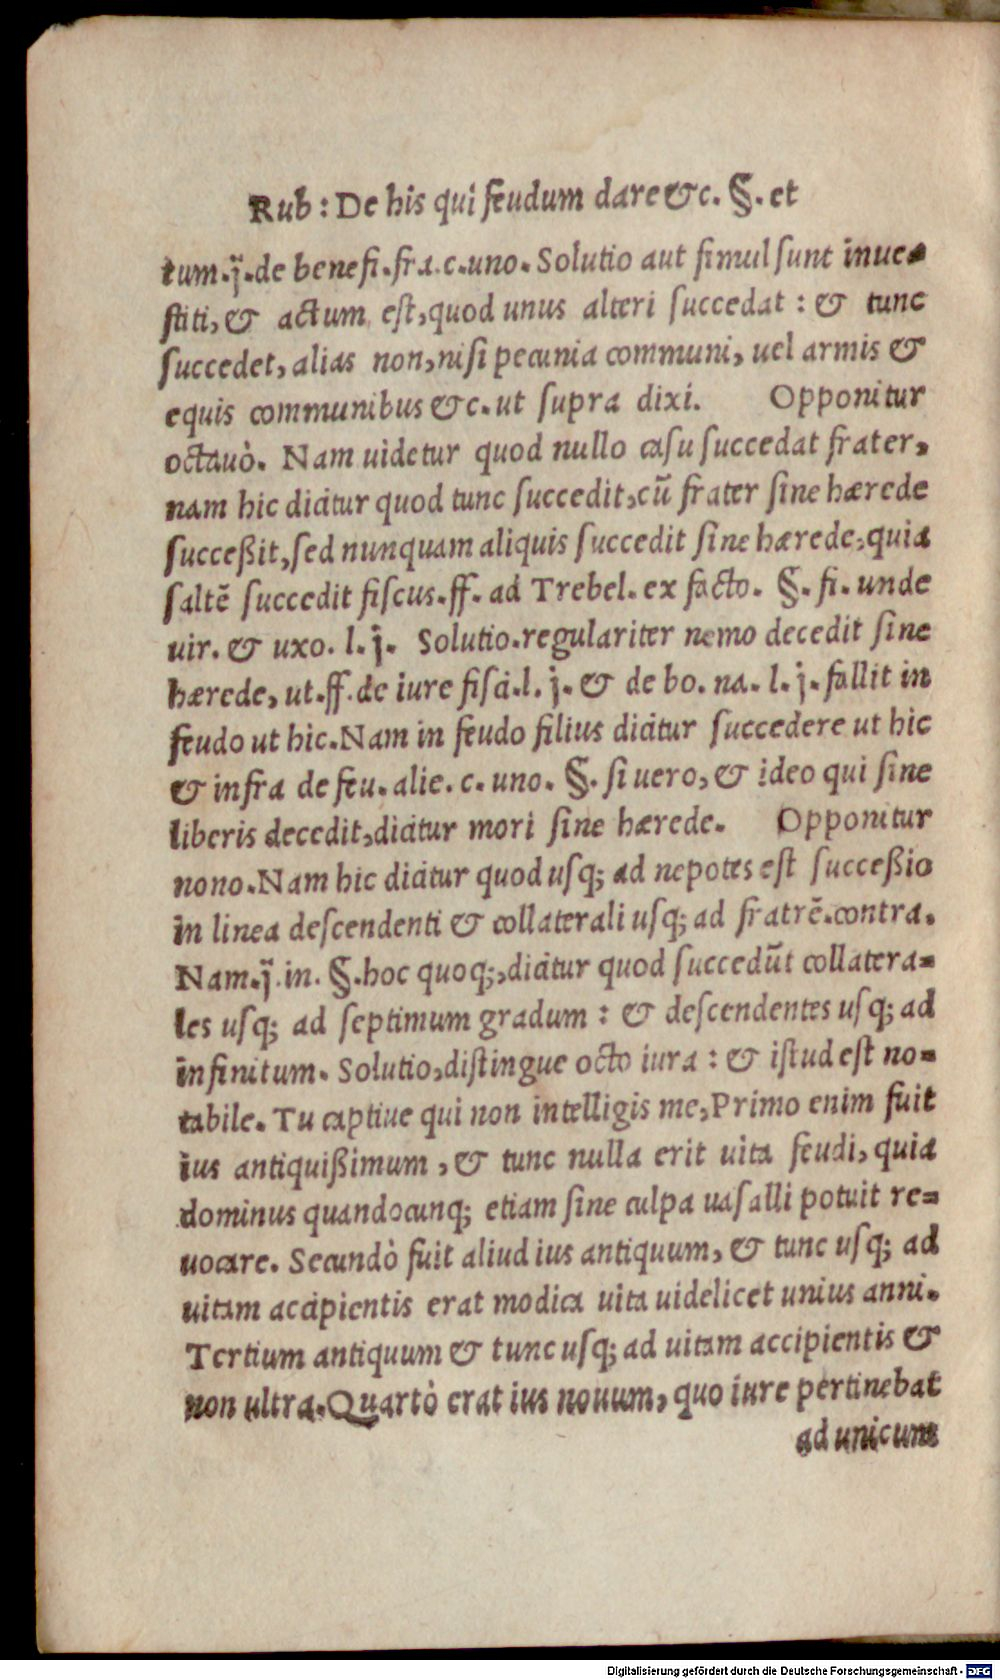 Rub: De his qui feudum dare &c. §. et
tum.j̈.de benefi.fra.c.uno. Solutio aut simul sunt inue-
stiti, & actum est, quod unus alteri succedat: & tunc
succedet, alias non, nisi pecunia communi, uel armis &
equis communibus &c. ut supra dixi. Opponitur
octauò. Nam uidetur quod nullo casu succedat frater,
nam hic dicitur quod tunc succedit, cū frater sine hærede
succeßit, sed nunquam aliquis succedit sine hærede, quia
saltẽ succedit fiscus. ff. ad Trebel. ex facto. §. fi. unde
uir. & uxo. l. j. Solutio. regulariter nemo decedit sine
hærede, ut. ff. de iure fisci. l. j. & de bo. na. l. j. fallit in
feudo ut hic. Nam in feudo filius dicitur succedere ut hic
& infra de feu. alie. c. uno. §. si uero, & ideo qui sine
liberis decedit, dicitur mori sine hærede. Opponitur
nono. Nam hic dicitur quod usq; ad nepotes est succeßio
in linea descendenti & collaterali usq; ad fratrẽ. contra.
Nam.j̈.in. §. hoc quoq;, dicitur quod succedūt collatera-
les usq; ad septimum gradum: & descendentes usq; ad
infinitum. Solutio, distingue octo iura: & istud est no-
tabile. Tu captiue qui non intelligis me, Primo enim fuit
ius antiquißimum, & tunc nulla erit uita feudi, quia
dominus quandocunq; etiam sine culpa uasalli potuit re-
uocare. Secundò fuit aliud ius antiquum, & tunc usq; ad
uitam accipientis erat modica uita uidelicet unius anni.
Tertium antiquum & tunc usq; ad uitam accipientis &
non ultra. Quartò erat ius nouum, quo iure pertinebat
ad unicum
Digitalisierung gefördert durch die Deutsche Forschungsgemeinschaft - DFG